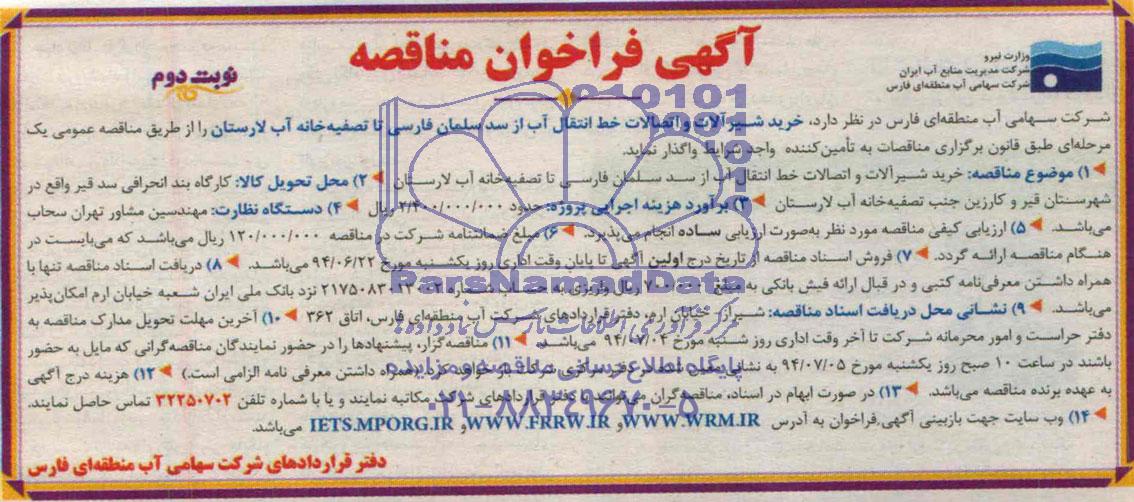 آگهی فراخوان مناقصه
نوبت دوم
وزارت نیرو
شرکت مدیریت منابع آب ایران
شرکت سهامی آب منطقه‌ای فارس
شرکت سهامی آب منطقه‌ای فارس در نظر دارد، خرید شیرآلات و اتصالات خط انتقال آب از سد سلمان فارسی تا تصفیه‌خانه آب لارستان را از طریق مناقصه عمومی یک
مرحله‌ای طبق قانون برگزاری مناقصات به تأمین‌کننده واجد شرایط واگذار نماید.
۱) موضوع مناقصه: خرید شیرآلات و اتصالات خط انتقال آب از سد سلمان فارسی تا تصفیه‌خانه آب لارستان ۲) محل تحویل کالا: کارگاه بند انحرافی سد قیر واقع در
شهرستان قیر و کارزین جنب تصفیه‌خانه آب لارستان ۳) برآورد هزینه اجرایی پروژه: حدود ریال ۴) دستگاه نظارت: مهندسین مشاور تهران سحاب
می‌باشد. ۵) ارزیابی کیفی مناقصه مورد نظر به‌صورت ارزیابی ساده انجام می‌پذیرد. ۶) مبلغ ضمانتنامه شرکت در مناقصه ۱۲۰/۰۰۰/۰۰۰ ریال می‌باشد که می‌بایست در
هنگام مناقصه ارائه گردد. ۷) فروش اسناد مناقصه از تاریخ درج اولین آگهی تا پایان وقت اداری روز یکشنبه مورخ ۹۴/۰۶/۲۲ می‌باشد. ۸) دریافت اسناد مناقصه تنها با
همراه داشتن معرفی‌نامه کتبی و در قبال ارائه فیش بانکی به مبلغ ریال واریزی به حساب شماره نزد بانک ملی ایران شعبه خیابان ارم امکان‌پذیر
می‌باشد. ۹) نشانی محل دریافت اسناد مناقصه: شیراز- خیابان ارم، دفتر قراردادهای شرکت آب منطقه‌ای فارس، اتاق ۳۶۲ ۱۰) آخرین مهلت تحویل مدارک مناقصه به
دفتر حراست و امور محرمانه شرکت تا آخر وقت اداری روز شنبه مورخ ۹۴/۰۷/۰۴ می‌باشد. ۱۱) مناقصه‌گزار، پیشنهادها را در حضور نمایندگان مناقصه‌گرانی که مایل به حضور
باشند در ساعت ۱۰ صبح روز یکشنبه مورخ ۹۴/۰۷/۰۵ به نشانی دفتر مرکزی شرکت باز خواهد کرد (همراه داشتن معرفی نامه الزامی است.) ۱۲) هزینه درج آگهی
به عهده برنده مناقصه می‌باشد. ۱۳) در صورت ابهام در اسناد، مناقصه‌گران می‌توانند با دفتر قراردادهای شرکت مکاتبه نمایند و یا با شماره تلفن ۳۲۲۵۰۷۰۲ تماس حاصل نمایند.
۱۴) وب سایت جهت بازبینی آگهی فراخوان به آدرس WWW.WRM.IR و WWW.FRRW.IR و IETS.MPORG.IR می‌باشد.
دفتر قراردادهای شرکت سهامی آب منطقه‌ای فارس
ParsNamadData
مرکز فرآوری اطلاعات پارس نماد داده‌ها
پایگاه اطلاع رسانی مناقصه و مزایده
۰۲۱-۸۸۳۴۹۶۷۰-۵